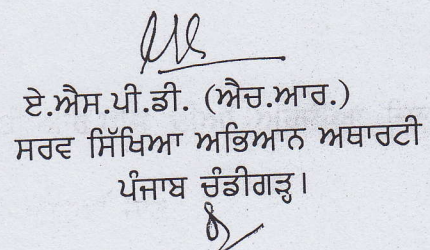 ਏ.ਐਸ.ਪੀ.ਡੀ. (ਐਚ.ਆਰ.)
ਸਰਵ ਸਿੱਖਿਆ ਅਭਿਆਨ ਅਥਾਰਟੀ
ਪੰਜਾਬ ਚੰਡੀਗੜ੍ਹ।